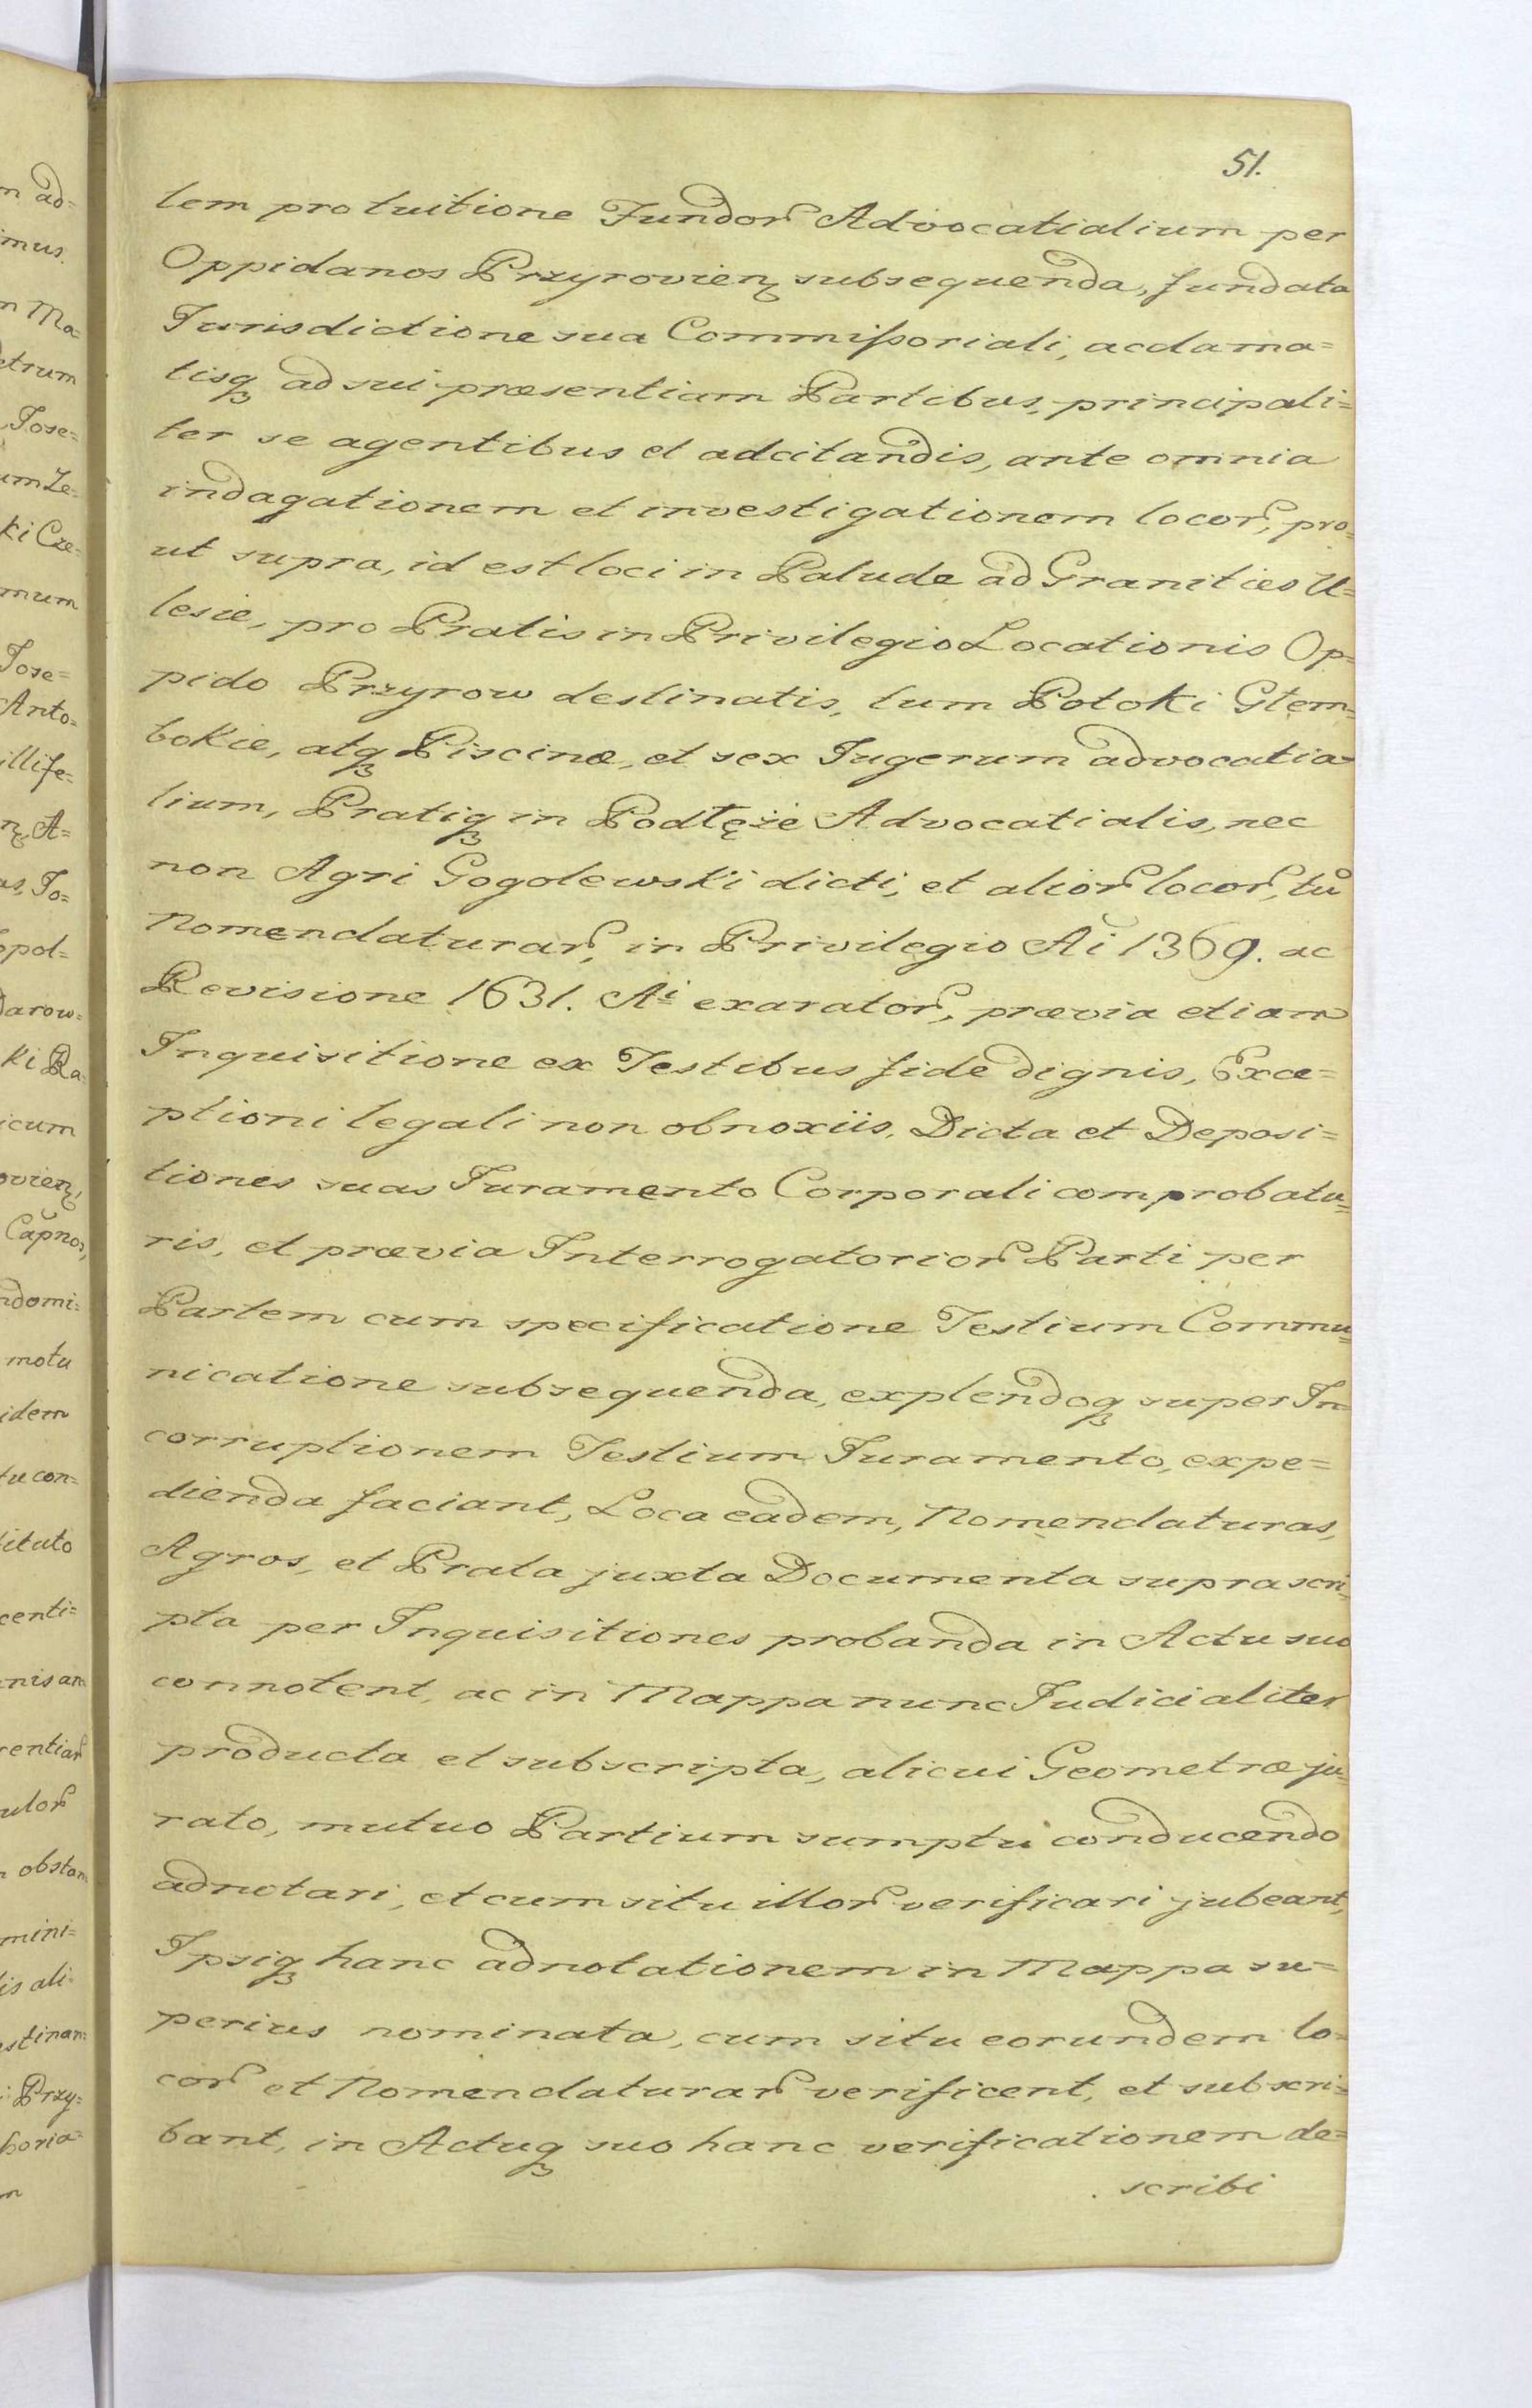 51.
lem pro tuitione Fundor̃ Advocatialium per
Oppidanos Przyrovienȝ subsequenda, fundata
Jurisdictione sua Commißoriali, acclama=
tisqȝ ad sui præsentiam Partibus, principali=
ter se agentibus et adcitandis, ante omnia
indagationem et investigationem locor̃, pro=
ut supra, id est loci in Palude ad Granities U=
lesie, pro Pratis in Privilegio Locationis Op=
pido Przyrow destinatis, tum Potoki Głem=
bokie, atqȝ Piscinæ, et sex Jugerum advocatia=
lium, Pratiqȝ in Podłęże Advocatialis, nec
non Agri Gogolewski dicti, et alior̃ locor̃, tũ
Nomenclaturar̃, in Privilegio Aĩ 1369. ac
Revisione 1631. Ai exarator̃, prævia etiam
Inquisitione ex Testibus fide dignis, Exce=
ptioni legali non obnoxiis, Dicta et Deposi=
tiones suas Juramento Corporali comprobatu=
ris, et prævia Interrogatorior̃ Parti per
Partem cum specificatione Testium Commu=
nicatione subsequenda, explendoqȝ super In=
corruptionem Testium Juramento, expe=
dienda faciant, Loca eadem, Nomenclaturas,
Agros, et Prata juxta Documenta suprascri=
pta per Inquisitiones probanda in Actu suo
connotent, ac in Mappa nunc Judicialiter
producta et subscripta, alicui Geometræ ju=
rato, mutuo Partium sumptu conducendo
adnotari, et cum situ illor̃ verificari jubeant,
Ipsiqȝ hanc adnotationem in Mappa su=
perius nominata, cum situ eorundem lo=
cor̃ et Nomenclaturar̃ verificent, et subscri=
bant, in Actuqȝ suo hanc verificationem de=
scribi